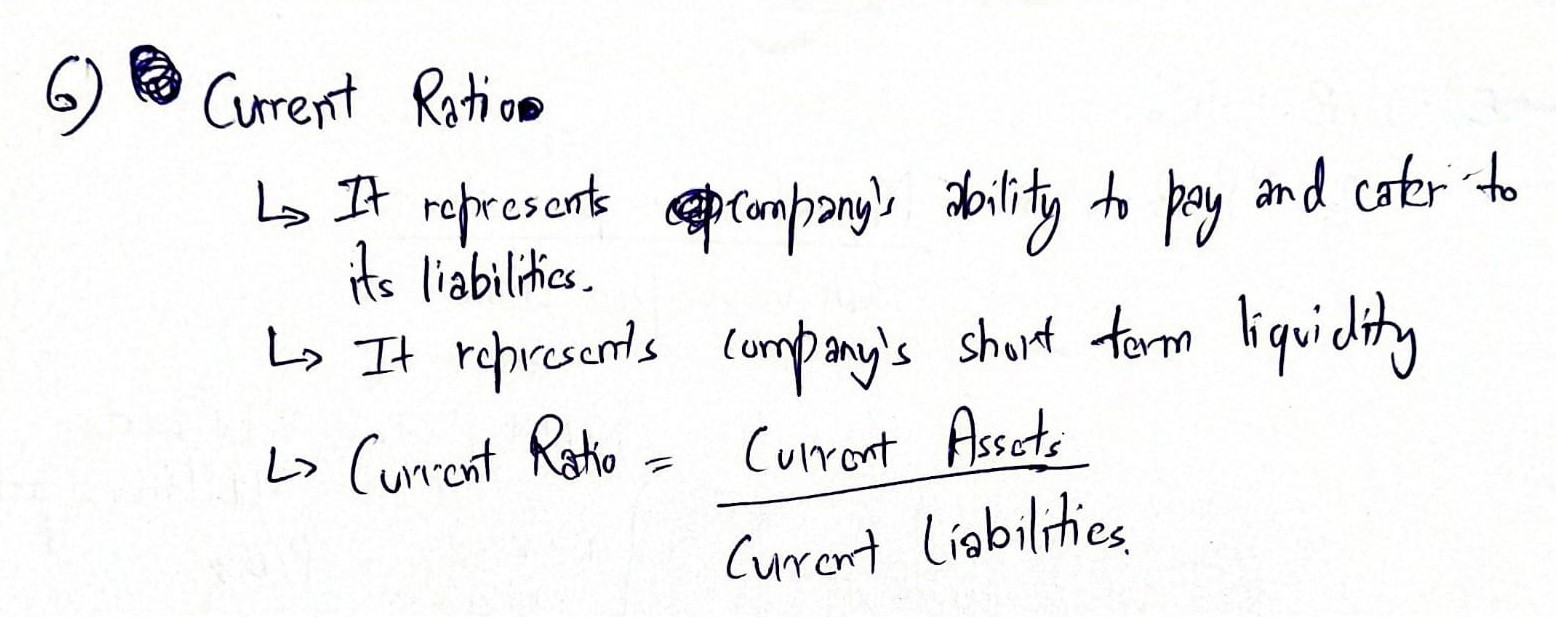 6) Current Ratio
↳ It represents company's ability to pay and cater to
its liabilities.
↳ It represents company's short term liquidity
↳ Current Ratio = Current Assets
Current Liabilities.